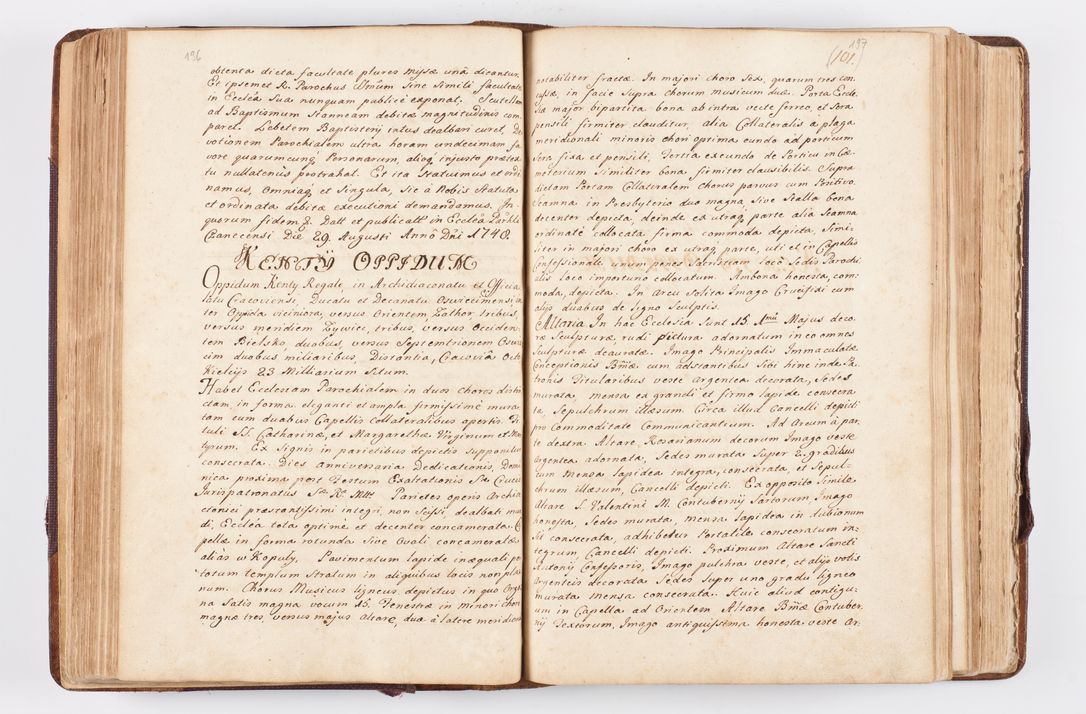 196
obtenta dicta facultate plures Missæ unâ dicantur.
Et ipsemet R. Parochus Vnum sine simili facultate
in Ecclâ sua nunquam publicè exponat. Scutellam
ad Baptismum Stanneam debitæ magnitudinis com
paret. Lebetem Baptisterij intus dealbari curet,
votionem Parochialem ultra horam undecimam fa
vore quarumcunq Personarum, alioq injusto prætex
tu nullatenus protrahat. Et ita statuimus et ordi
namus, omniaq et singula, sic à Nobis statuta
et ordinata debitæ executioni demandamus. In
quorum fidem &. Datt et publicatt in Ecclâ Parchli
Die 29. Augusti Annô Dñi 1748.
KENTY OPPIDUM
Oppidum Kenty Regale, in Archidiaconatu et Officia
latu Cracoviensi, Ducatu et Decanatu Oswiecimensi, in
ter Oppida viciniora, versus Orientem Zathor, tribus,
versus meridiem Zywiec, tribus, versus Occiden
tem Bielsko, duobus, versus Septemtrionem Oswie
cim duobus miliaribus, Distantia, Cracoviâ Octo
Kielcijs 23 Milliarium Situm.
Habet Ecclesiam Parochialem in duos choros distin
ctam, in forma eleganti et ampla firmissimè mura
tam cum duabus Capellis collateralibus apertis. Ti
tuli SS. Catharinæ, et Margarethæ Virginum et Mar
tyrum. Ex signis in parietibus depictis supponitur
consecrata. Dies anniversaria Dedicationis, Domi
nica proxima post Festum Exaltationis Stæ Crucis
Jurispatronatus Sæ Ræ Mttis. Parietes operis Archite
ctonici præstantissimi integri, non scissi, dealbati mun
di, Ecclâ tota optimè et decenter concamerata. Ca
pellæ in forma rotunda sive Ovali concameratæ
alias w Kopuly. Pavimentum lapide inæquali per
totum templum Stratum in aliquibus locis non pla
num. Chorus Musicus ligneus depictus in quo Orga
na satis magna vocum 15. Fenestræ in minori choro
magnæ tres, versus majus Altare, dua à latere meridion
197
(101.)
notabiliter fractæ. In majori choro Sex, quarum tres con
cussæ, in facie supra chorum musicum duæ. Porta Eccle
siæ major bipartita bona ab intra vecte ferreo, et Sera
pensili firmiter clauditur, alia Collateralis à plaga
meridionali minoris chori optima eundo ad porticum
Sera fixa et pensili, Tertia exeundo de Porticu in Cæ
meterium similiter bona firmiter clausibilis. Supra
dictam Portam Collateralem chorus parvus cum Positivo.
Scamna in Presbyterio duo magna sive Stalla bona
decenter depicta, deinde ex utraq parte alia Scamna
ordinatè collocata firma commoda depicta, simi
liter in majori choro ex utraq parte, uti et in Capellis
Confessionali unum penes Sacristiam locô Sedis Parochi
alis loco importuno collocatum. Ambona honesta, com
moda, depicta. In Arcu Solita Imago Crucifixi cum
alijs duabus de ligno Sculptis.
Altaria. In hac Ecclesia sunt 15. 1mũ Majus deco
ræ Sculpturæ, rudi pictura adornatum in eo omnes
Sculpturæ deauratæ. Imago Principalis Immaculatæ
Conceptionis Bmæ cum adstantibus Sibi hinc inde Pa
tronis Titularibus veste argentea decorata, Sedes
murata, mensa ex grandi et firmo lapide consecra
ta, Sepulchrum illæsum. Circa illud Cancelli depicti
pro Commoditate Communicantium. Ad Arcum à par
te dextra Altare Rosarianum decorum Imago veste
Argentea adornata, Sedes murata super 2. gradibus
cum mensa lapidea integra, consecrata, et Sepul
chrum illæsum, Cancelli depicti. Ex opposito Simile
Altare S. Valentini M. Contubernij Sartorum Imago
honesta, Sedes murata, mensa lapidea in dubionum
sit consecrata, adhibetur Portatile consecratum in
tegrum Cancelli depicti. Proximum Altare Sancti
Antonij Confessoris, Imago pulchra veste, et alijs votis
Argenteis decorata Sedes super uno gradu ligneo
murata mensa consecrata. Huic aliud contigu
um in Capella ad Orientem Altare Bmæ Contuber
nij Textorum, Imago antiquissima honesta veste Ar-